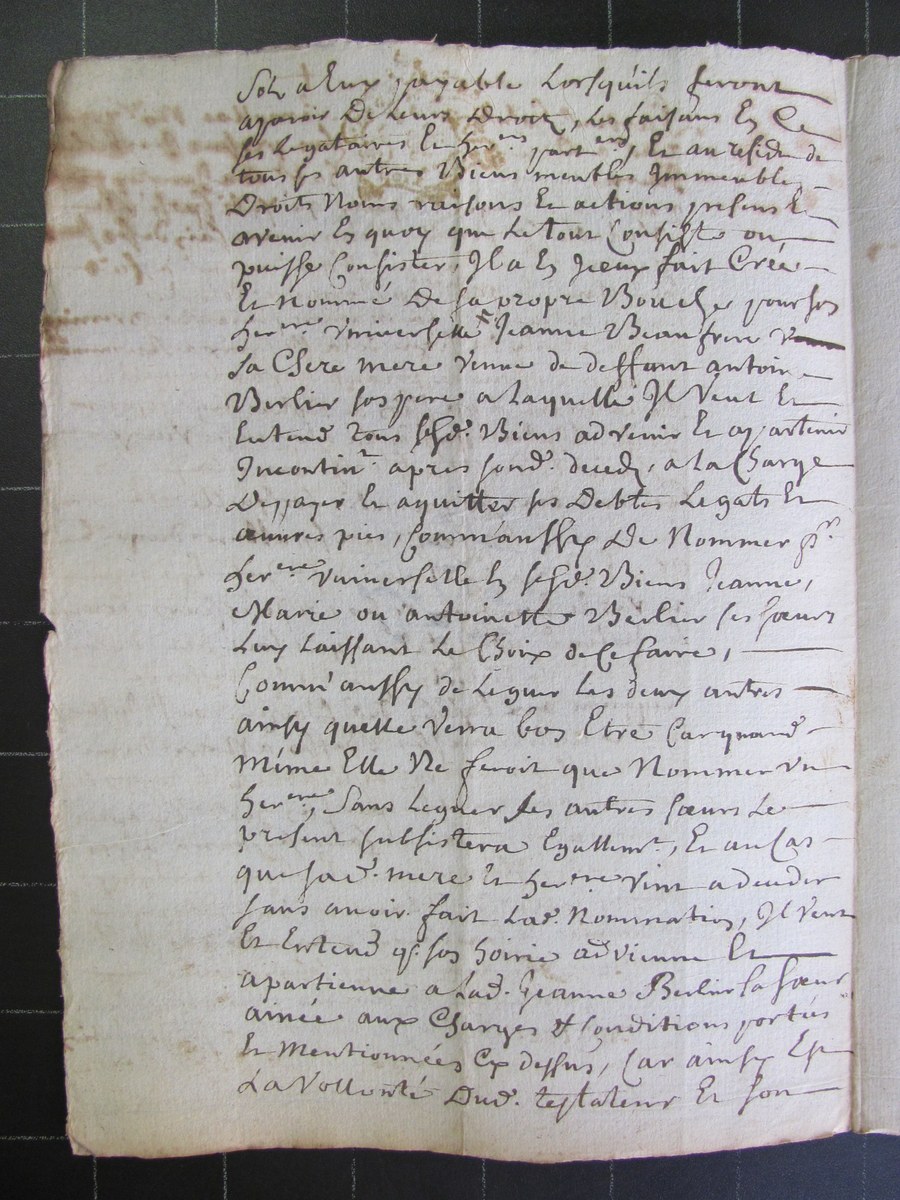 Solz a Eux payable Lorsquils feront
aparoir De Leurs Droitz, Les faisans En Ce
ses Legataires Et her.ers part.ers, Et au residu de
tous ses autres Biens meubles Immeubles
Droits Noms raisons Et actions presens Et
avenir En quoy que Le tout Consiste ou
puisse Consister, Il a En Iceux fait Créé
Et Nommé De sa propre Bouche pour son
her.ere Vniverselle Jeanne Beaufrere
Sa Chere mere veuve de deffunt antoine
Berlier son pere a Laquelle Il Veut Et
Entend Tous sesd. Biens advenir Et apartenir
Incontin.t apres sond. decedz, a La Charge
De payer Et aquitter ses Debtes Legats Et
œuvres pies, Comm'aussy De Nommer pr.
her.ere vniverselle En sesd. Biens Jeanne,
Marie ou antoinette Berlier ses sœurs
Luy Laissant Le Choix de Ce faire,
Comm'aussy de Leguer Les deux autres
ainsy quelle Verra bon Etre Car quand
méme Elle Ne feroit que Nommer vn
her.ere, Sans Leguer Les autres sœurs Le
present subsistera Egallem.t, Et au Cas
que sad. mere Et her.ere vint a deceder
sans avoir fait Lad. Nomination, Il veut
Et Entend q. son hoirie advienne Et
apartienne a Lad. Jeanne Berlier sa sœur
ainée aux Charges & Conditions portées
Et Mentionnées Cy dessus, Car ainsy Est
La Vollonté Dud. testateur Et son